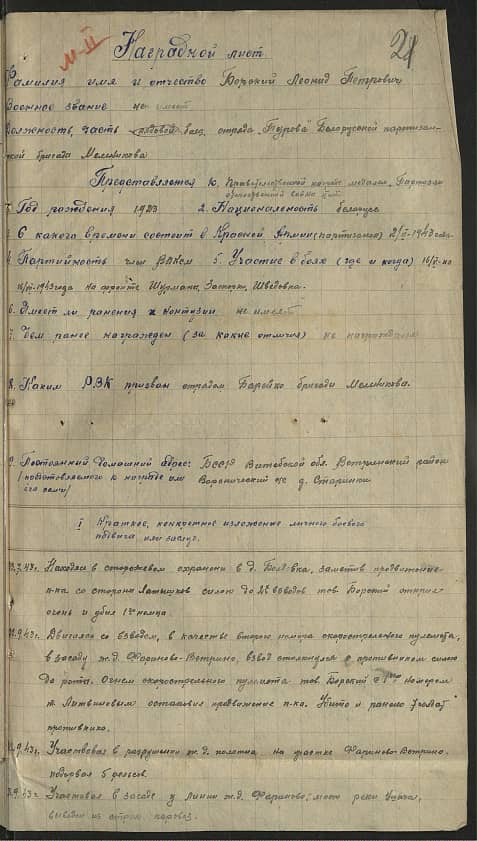 21
Наградной лист
Фамилия имя и отчество Борский Леонид Петрович
Военное звание не имеет
Должность, часть рядовой боец отряда "Бурова" Белорусской партизан-
ской бригада Мельникова
Представляется к. Правительственной награде медалью "Партизан
отечественной войны
1. Год рождения 1923 2. Национальность беларус
3. С какого времени состоит в Красной Армии (партизанах)
4. Партийность член ВЛКСМ 5. Участие в боях (где и когда)
1943 года на фронте Шведовка.
6. Имеет ли ранения и контузии не имеет
7. Чем ранее награжден (за какие отличия) не награждался
8. Каким РВК призван отрядом Борейко бригады Мельникова.
9. Постоянный домашний адрес: БССР Витебской обл. Ветринский район
(представляемого к награде или Воронический с/с д. Старинки
его семьи)
I Краткое, конкретное изложение личного боевого
подвига или заслуг.
Находясь в сторожевом охранении в д. заметив продвижение
п-ка со стороны силою до 2х взводов тов Борский открыл
огонь и убил 1го немца.
.9.43г. Двигаясь со взводом, в качестве второго номера скорострельного пулемета,
в засаду ж.д. Фариново-Ветрино, взвод столкнулся с противником силою
до роты. Огнем скорострельного пулемета тов. Борский с 1ым номером
т. Литвиновым остановил продвижение п-ка. Убито и ранено 7 солдат
противника.
.9.43г. Участвовал в разрушении ж.д. полотна на участке Фариново-Ветрино.
подорвал 5 рельсов.
.9.43г Участвовал в засаде у линии ж.д. Фариново, мост реки Ушача,
выведен из строя паровоз.